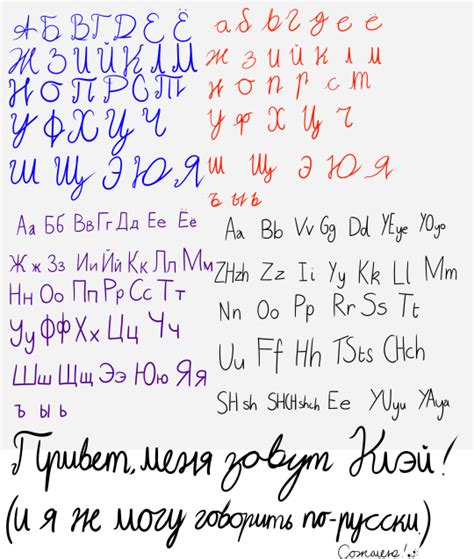 А Б В Г Д Е Ё
Ж З И Й К Л М
Н О П Р С Т
У Ф Х Ц Ч
Ш Щ Э Ю Я
а б в г д е ё
ж з и й к л м
н о п р с т
у ф х ц ч
ш щ э ю я
ъ ы ь
Аа Бб Вв Гг Дд Ее Ёё
Жж Зз Ии Йй Кк Лл Мм
Нн Оо Пп Рр Сс Тт
Уу Фф Хх Цц Чч
Шш Щщ Ээ Юю Яя
ъ ы ь
Aa Bb Vv Gg Dd YEye YOyo
ZHzh Zz Ii Yy Kk Ll Mm
Nn Oo Pp Rr Ss Tt
Uu Ff Hh TSts CHch
SHsh SHCHshch Ee YUyu YAya
Привет, меня зовут Клэй!
(и я не могу говорить по-русски)
Сожалею!